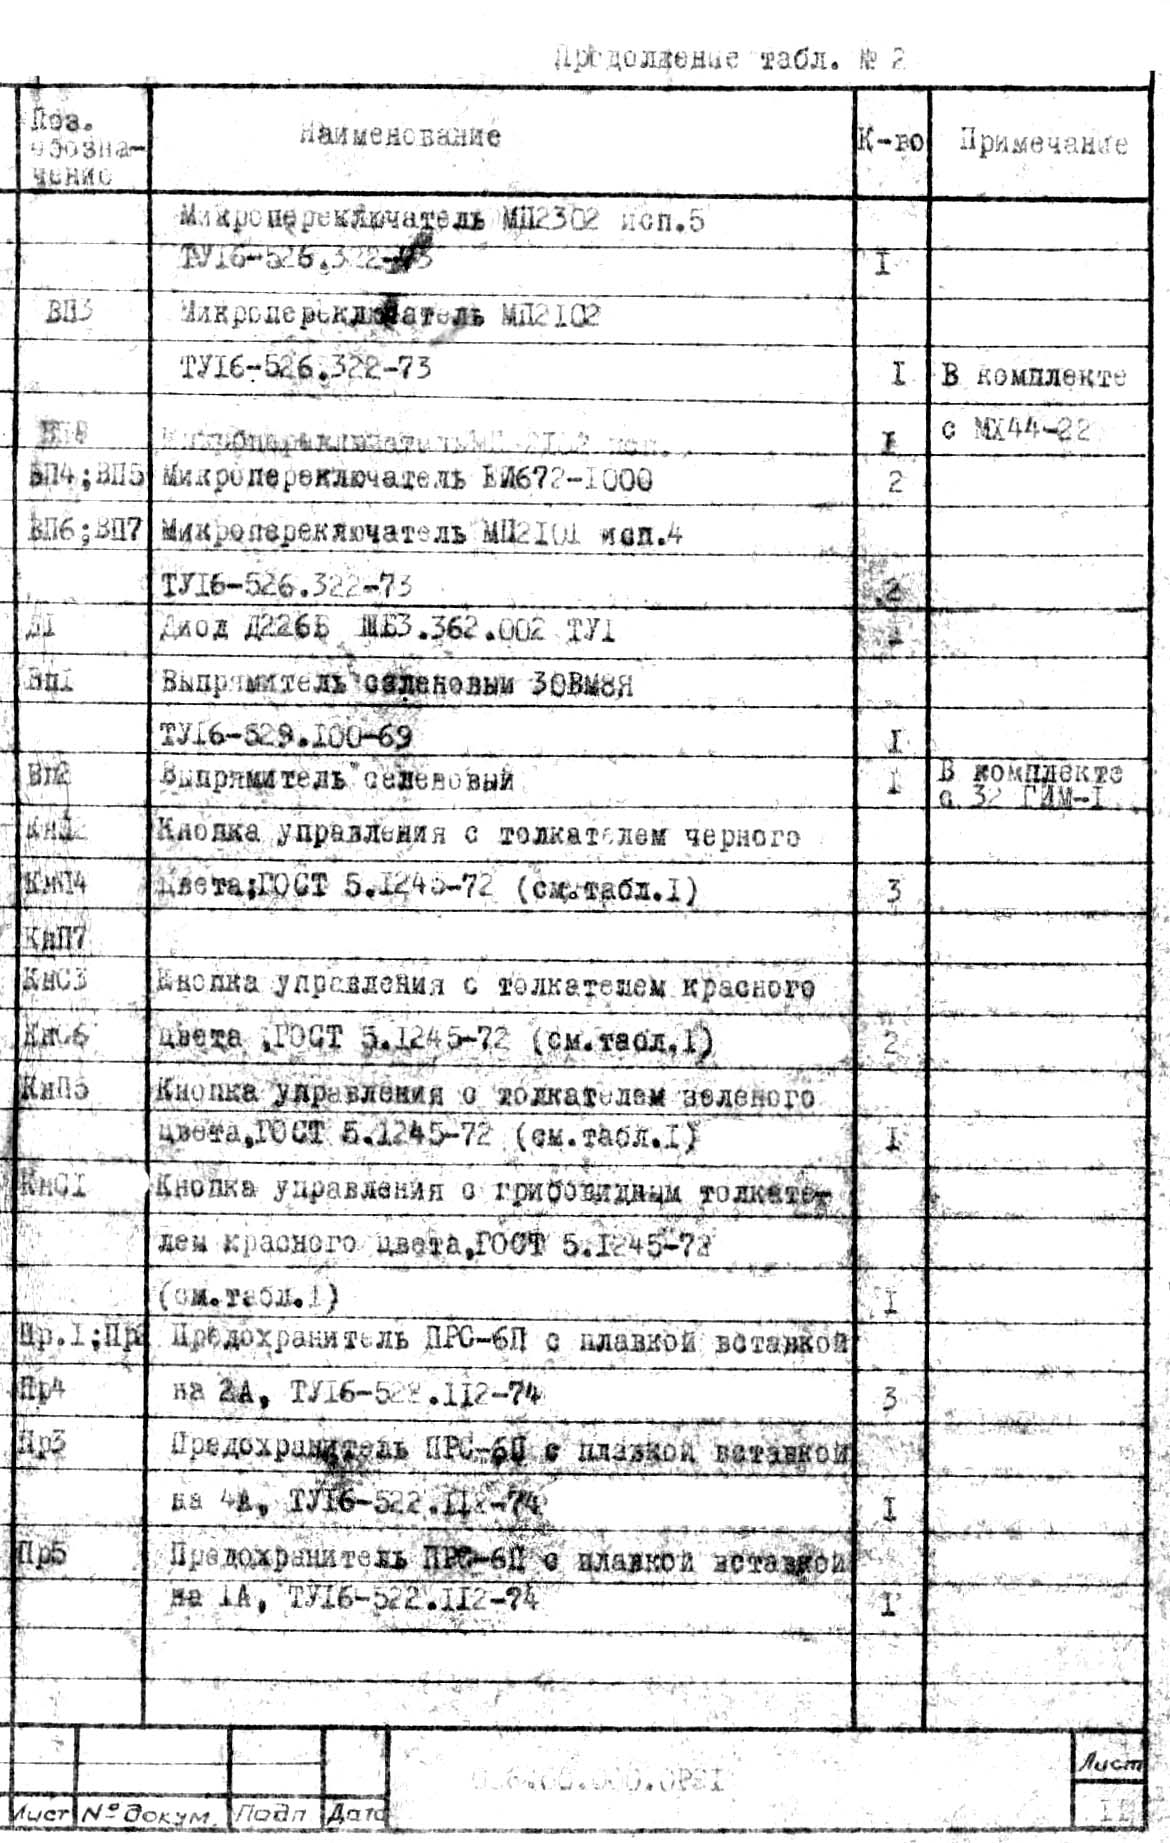 Продолжение табл. № 2
Поз. обозна-чение Наименование К-во Примечание
Микропереключатель МП2302 исп.5
ТУ16-526.322-73 I
ВП3 Микропереключатель МП2102
ТУ16-526.322-73 I В комплекте
с МХ44-22
I
ВП4;ВП5 Микропереключатель ВИ672-1000 2
ВП6;ВП7 Микропереключатель МП2101 исп.4
ТУ16-526.322-73 2
Д1 Диод Д226Б ЩБ3.362.002 ТУ1 1
Вп1 Выпрямитель селеновый 30ВМ8Я
ТУ16-529.100-69 I
Вп2 Выпрямитель селеновый I В комплекте
с 32 ГИМ-1
Кнопка управления с толкателем черного
цвета;ГОСТ 5.1245-72 (см.табл.1) 3
КнП7
КнС3 Кнопка управления с толкателем красного
КнС6 цвета ,ГОСТ 5.1245-72 (см.табл.1) 2
КнП5 Кнопка управления с толкателем зеленого
цвета,ГОСТ 5.1245-72 (см.табл.1) I
КнС1 Кнопка управления с грибовидным толкате-
лем красного цвета,ГОСТ 5.1245-72
(см.табл.1) I
Пр.1;Пр2 Предохранитель ПРС-6П с плавкой вставкой
Пр4 на 2А, ТУ16-522.112-74 3
Пр3 Предохранитель ПРС-6П с плавкой вставкой
на 4А, ТУ16-522.112-74 I
Пр5 Предохранитель ПРС-6П с плавкой вставкой
на 1А, ТУ16-522.112-74 I
Лист
Лист № докум. Подп Дата